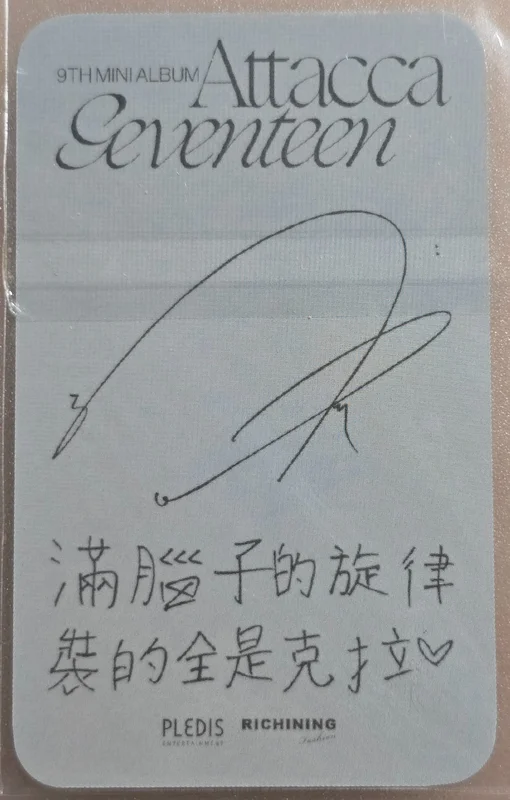 9TH MINI ALBUM Attacca
Seventeen
滿腦子的旋律
裝的全是克拉♡
PLEDIS
ENTERTAINMENT
RICHINING
Fashion